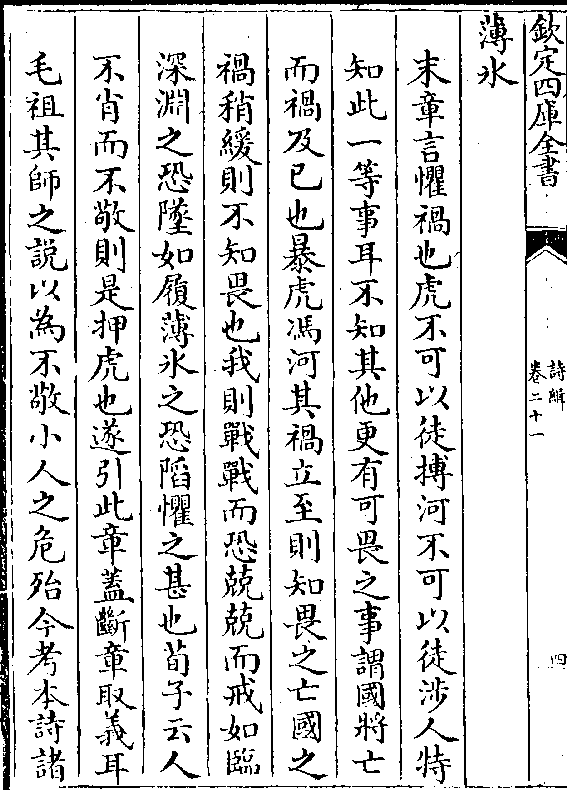 欽定四庫全書
詩緝
卷二十一
四
薄氷
末章言懼禍也虎不可以徒搏河不可以徒涉人特
知此一等事耳不知其他更有可畏之事謂國將亡
而禍及已也暴虎馮河其禍立至則知畏之亡國之
禍稍緩則不知畏也我則戰戰而恐兢兢而戒如臨
深淵之恐墜如履薄氷之恐䧟懼之甚也荀子云人
不肖而不敬則是押虎也遂引此章蓋斷章取義耳
毛祖其師之說以為不敬小人之危殆今考本詩諸